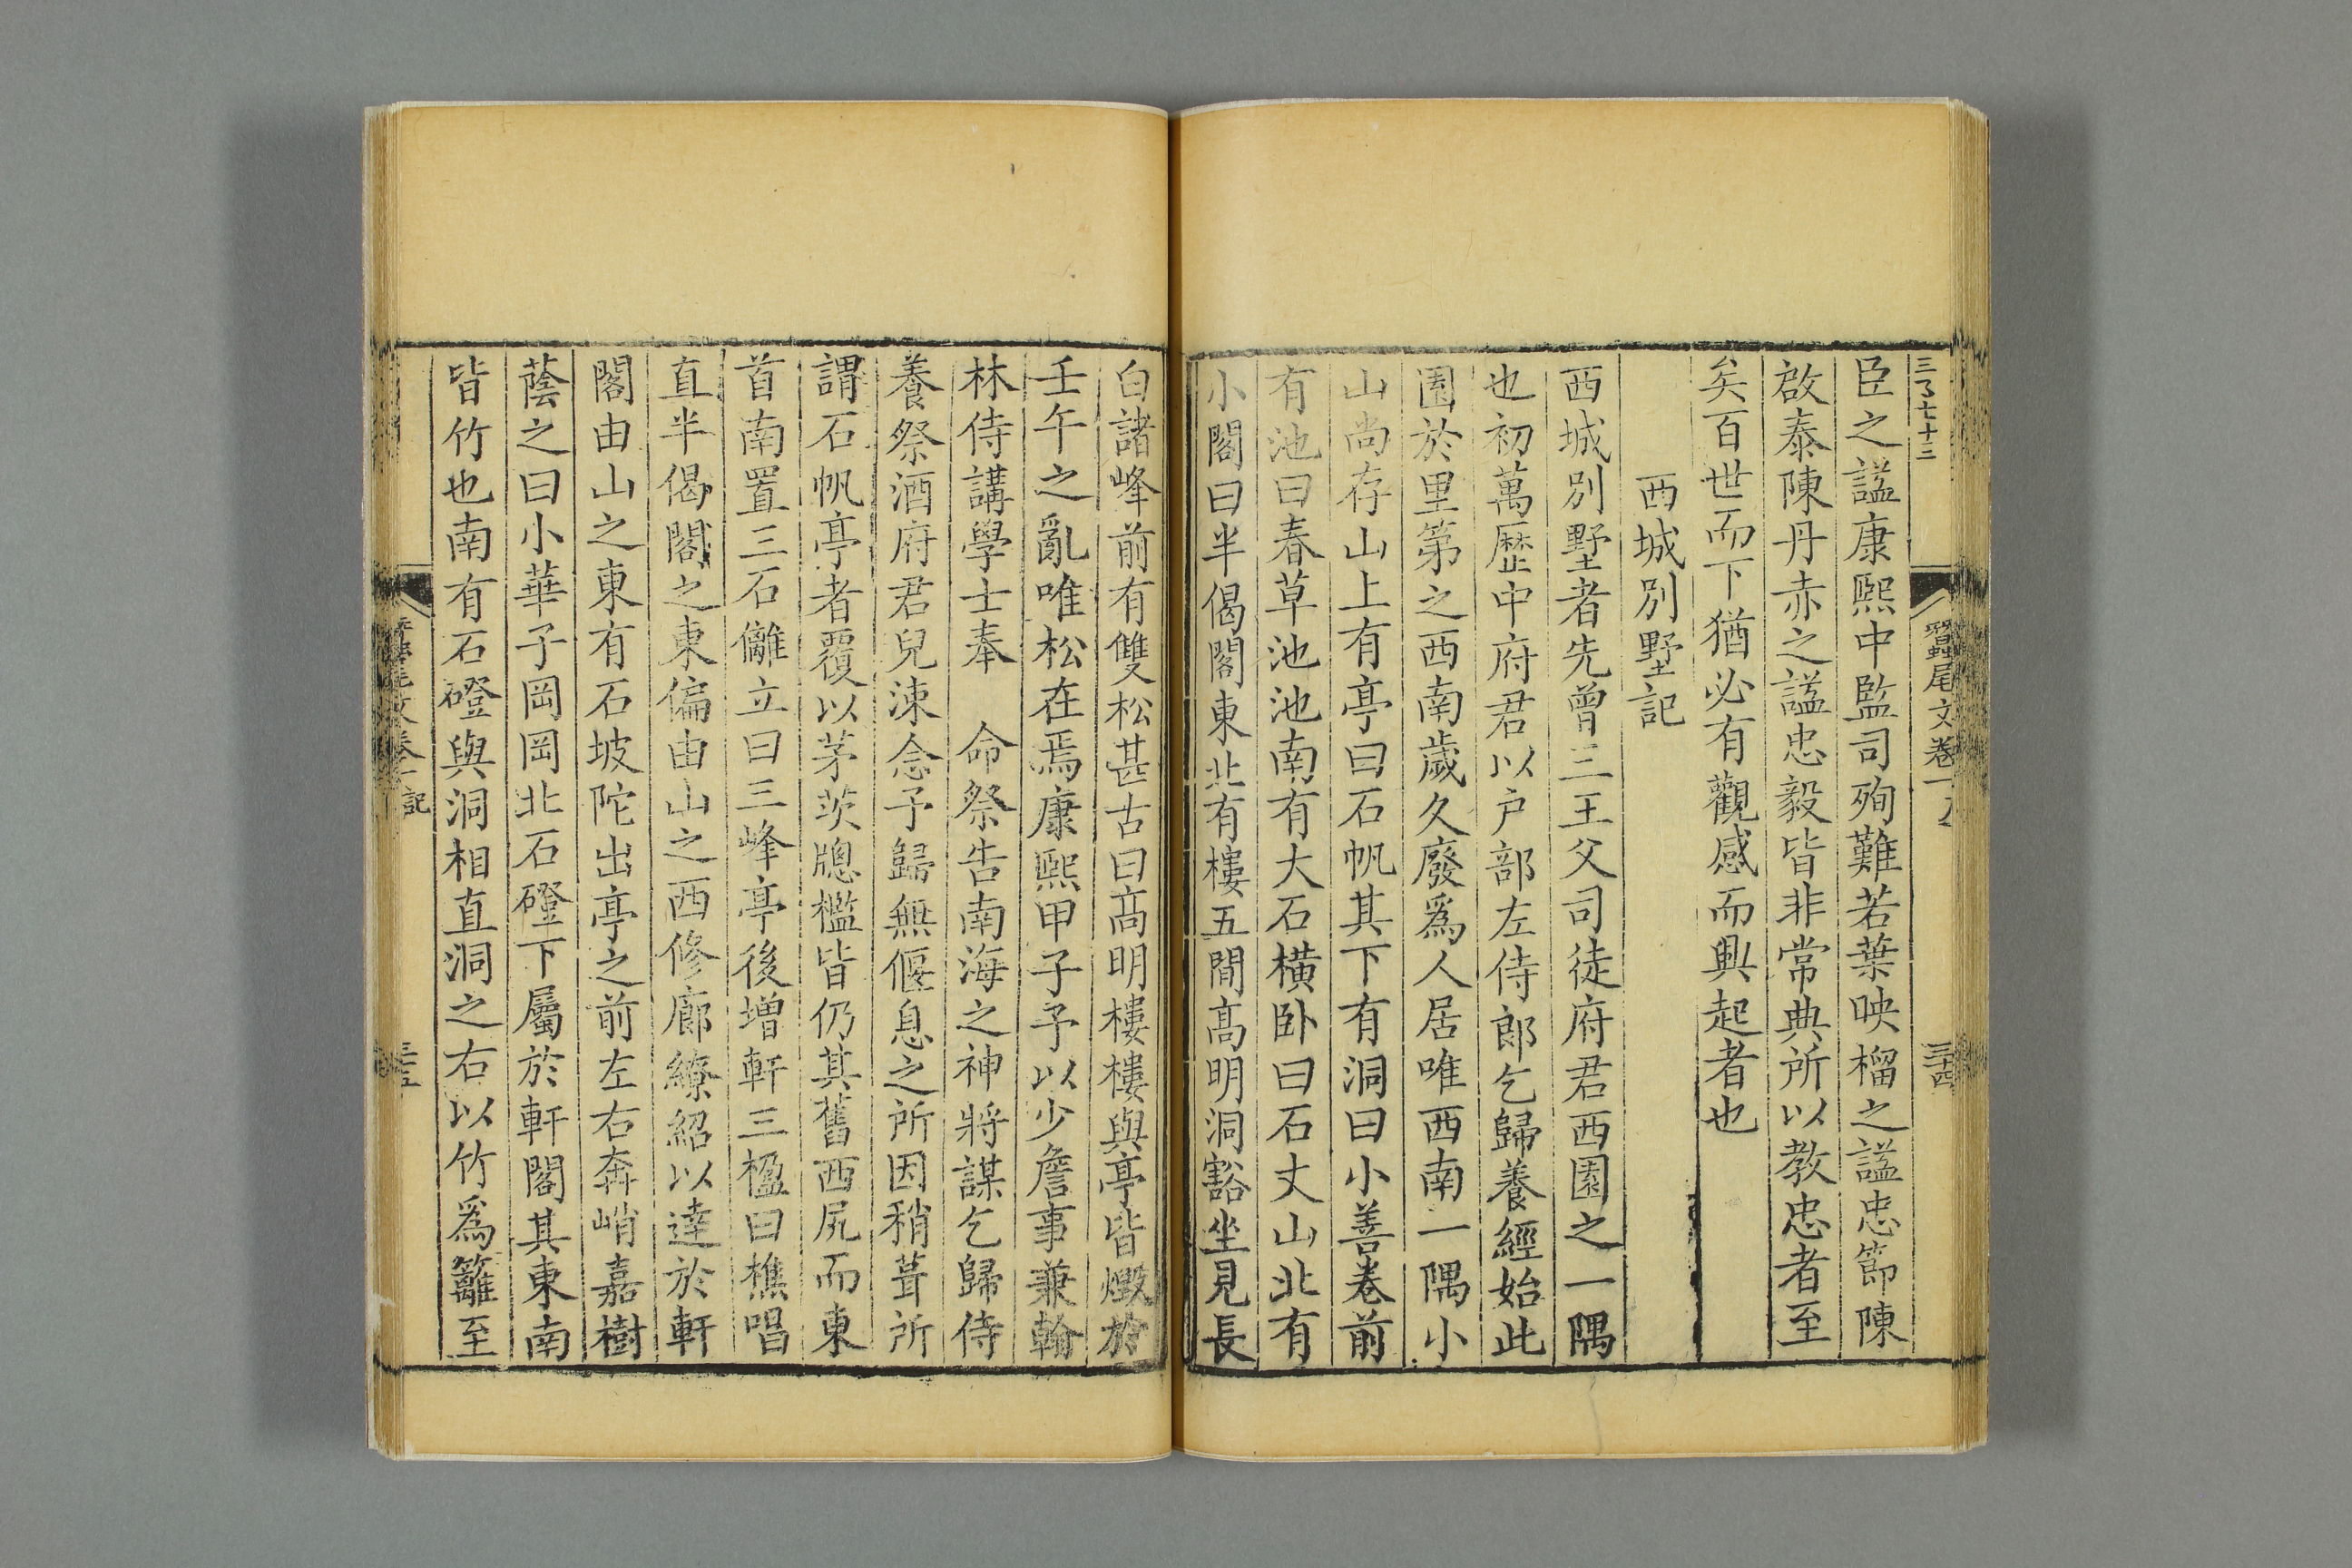 臣之諡康熙中監司殉難若葉映榴之諡忠節陳
啟泰陳丹赤之諡忠毅皆非常典所以教忠者至
矣百世而下猶必有觀感而興起者也
西城別墅記
西城別墅者先曾王父司徒府君西園之一隅
也初萬歷中府君以户部左侍郎乞歸養經始此
園於里第之西南歲久廢爲人居唯西南一隅小
山尚存山上有亭曰石帆其下有洞曰小善卷前
有池曰春草池池南有大石橫卧曰石丈山北有
小閣曰半偈閣東北有樓五間高明洞豁坐見長
白諸峰前有雙松甚古曰高明樓樓與亭皆燬於
壬午之亂唯松在焉康熙甲子予以少詹事兼翰
林侍講學士奉　命祭告南海之神將謀乞歸侍
養祭酒府君兒涑念予歸無偃息之所因稍葺所
謂石帆亭者覆以茅茨牕檻皆仍其舊西尻而東
首南置三石離立曰三峰亭後增軒三楹曰樵唱
直半偈閣之東偏由山之西修廊繚紹以達於軒
閣由山之東有石坡陀出亭之前左右奔峭嘉樹
蔭之曰小華子岡岡北石磴下屬於軒閣其東南
皆竹也南有石磴與洞相直洞之右以竹爲籬至